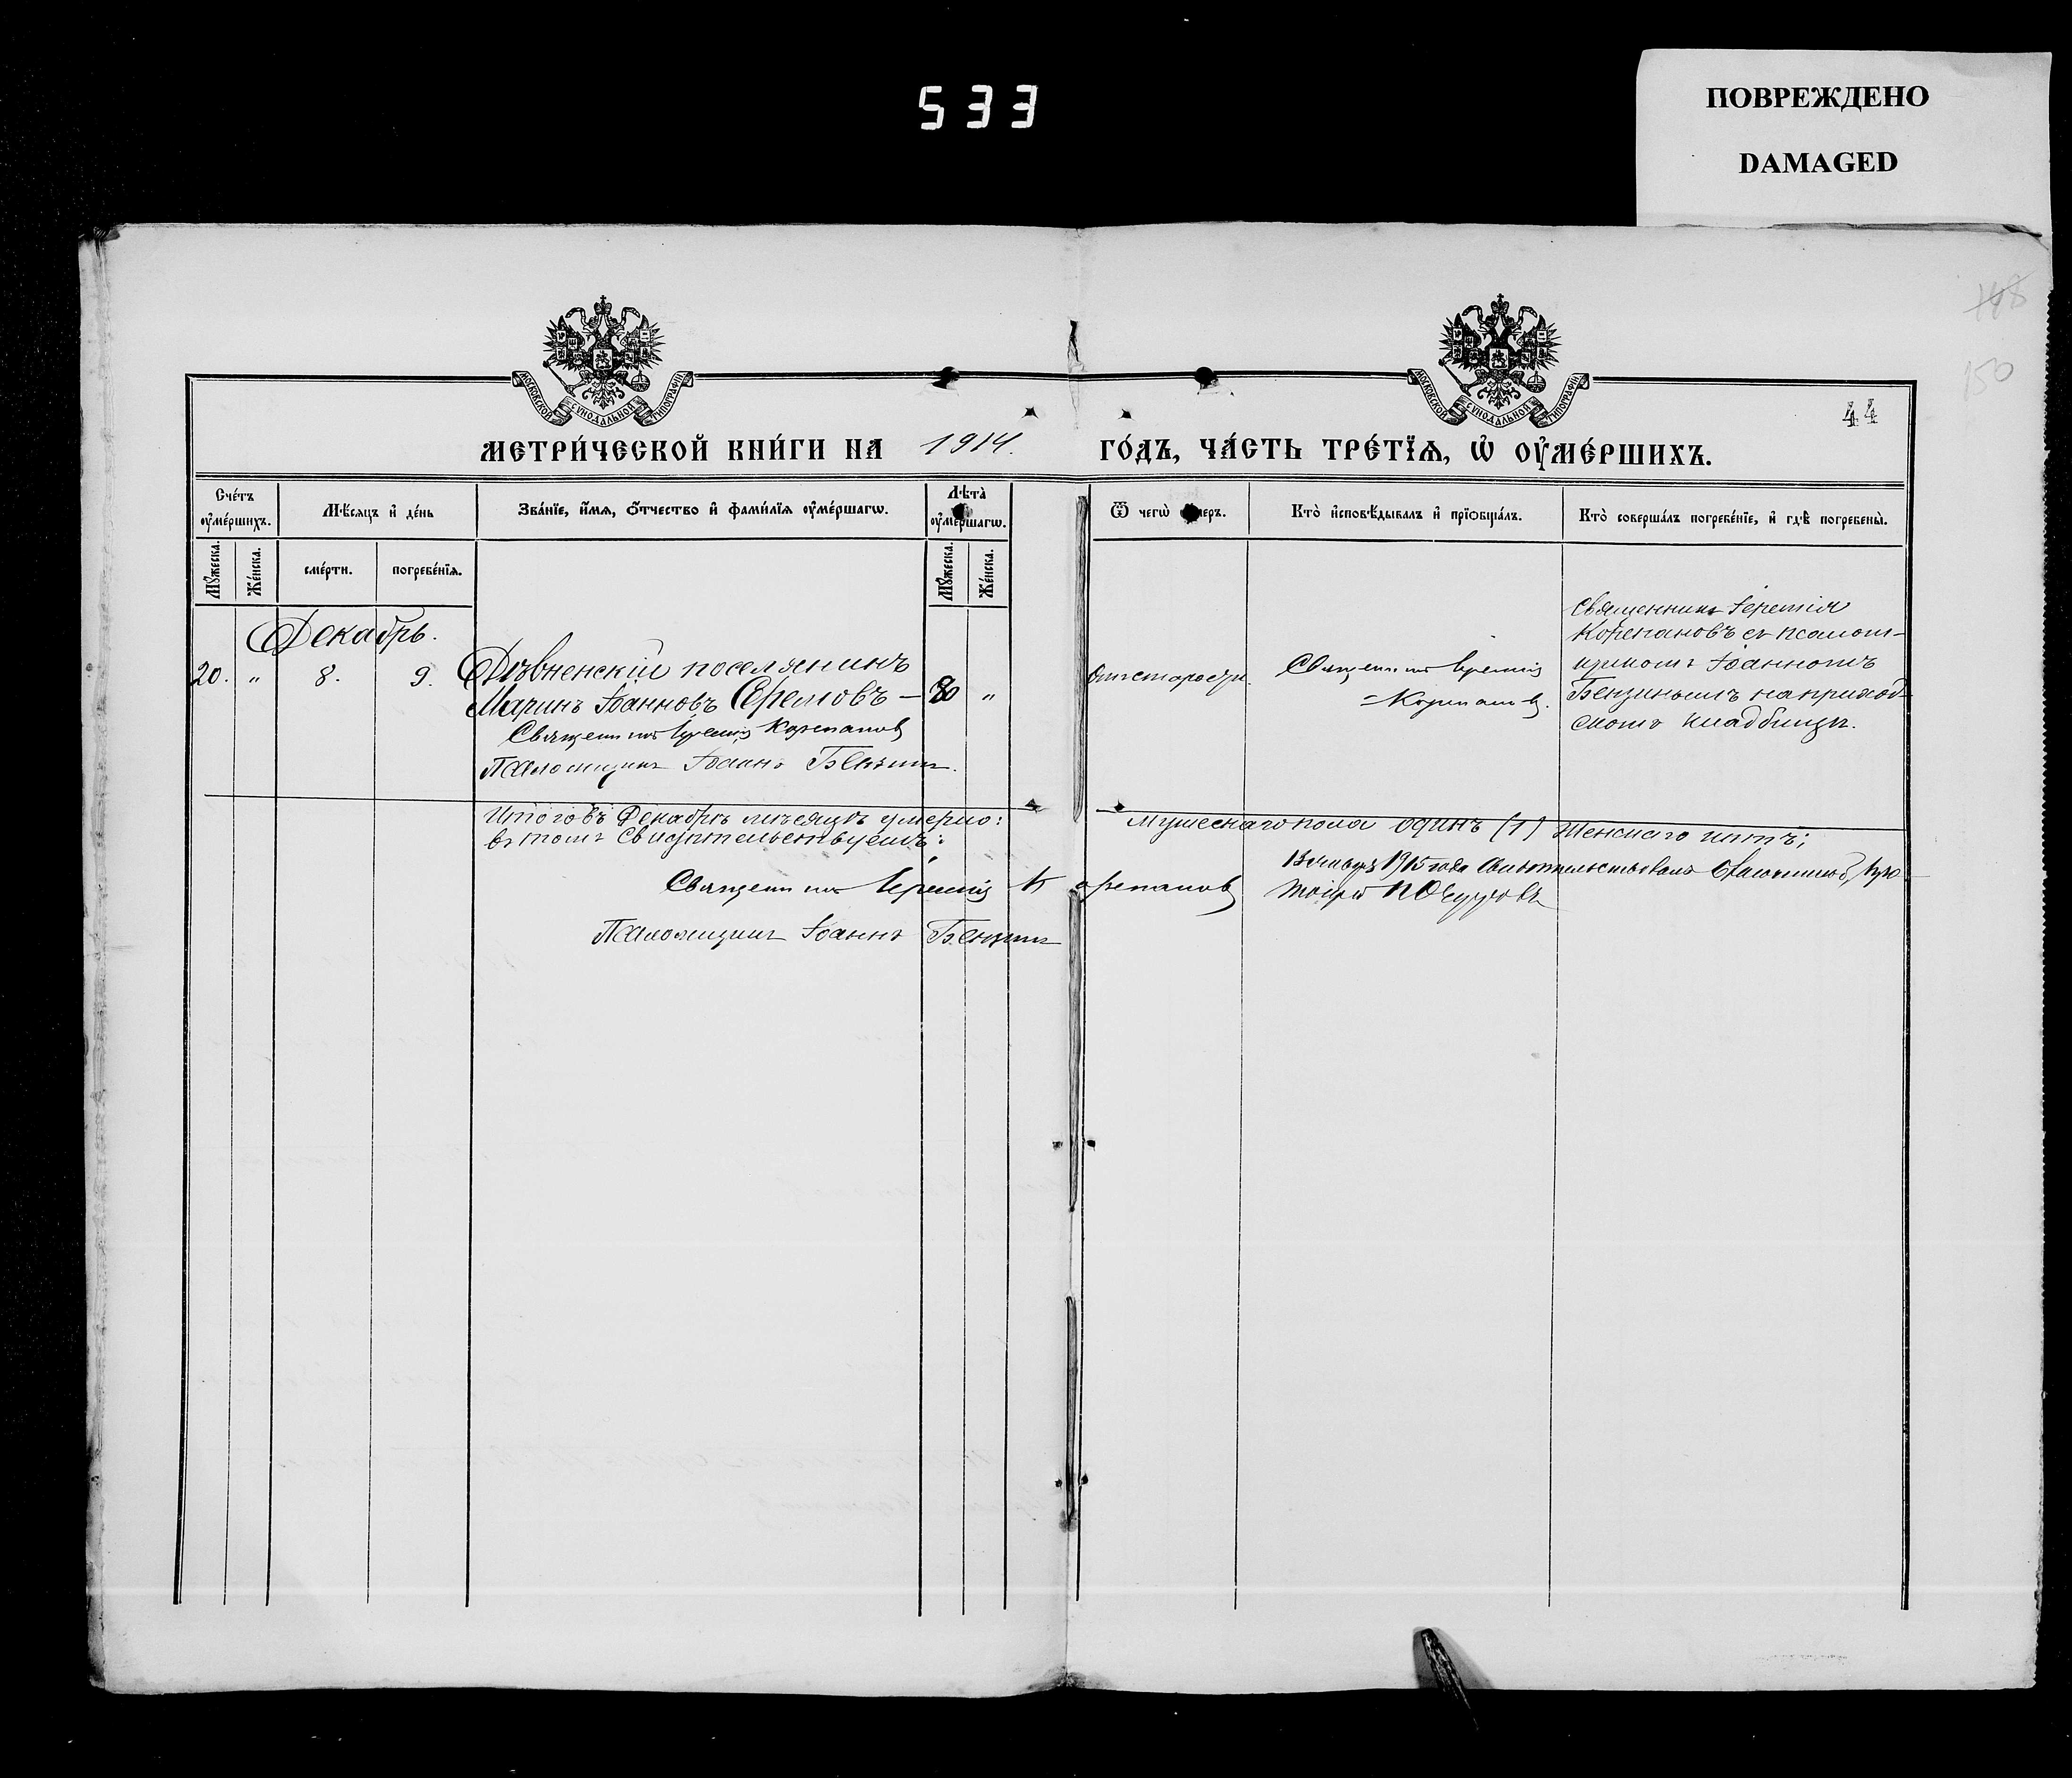 533
ПОВРЕЖДЕНО
DAMAGED
148
150
МОСКОВСКОЙ СѴНОДАЛЬНОЙ ТИПОГРАФІИ
МОСКОВСКОЙ СѴНОДАЛЬНОЙ ТИПОГРАФІИ
44
МЕТРИ́ЧЕСКОЙ КНИ́ГИ НА 1914. ГО́ДЪ, ЧА́СТЬ ТРЕ́ТЇѦ, Ѡ҆ ОУ҆МЕ́РШИХЪ.
Сче́тъ оу҆ме́ршихъ.
Мѣ́сѧцъ и҆ де́нь
Зва́нїе, и҆́мѧ, ѻ҆́тчество и҆ фами́лїѧ оу҆ме́ршагѡ.
Лѣ́та̀ оу҆ме́ршагѡ.
Ѿ чегѡ̀
Кто̀ и҆сповѣ́дывалъ и҆ прїѡбща́лъ.
Кто̀ соверша́лъ погребе́нїе, и҆ гдѣ̀ погребены̀.
Мꙋ́жеска.
Же́нска.
сме́рти.
погребе́нїѧ.
Мꙋ́жеска.
Же́нска.
Декабрь.
20. " 8. 9. поселянинъ
Маринъ Іоанновъ — 80 "
Священникъ Іеремія Корепановъ
Псаломщикъ Іоаннъ Бензинъ.
отъ старости
Священникъ Іеремія
Корепановъ.
Священникъ Іеремія
Корепановъ съ псалом-
щикомъ Іоанномъ
Бензинымъ на приход-
скомъ кладбищѣ.
Итого въ Декабрѣ мѣсяцѣ умерло: мужескаго пола одинъ (1) женскаго нѣтъ;
въ томъ свидѣтельствуемъ:
Священникъ Іеремія Корепановъ
Псаломщикъ Іоаннъ Бензинъ
1915 года